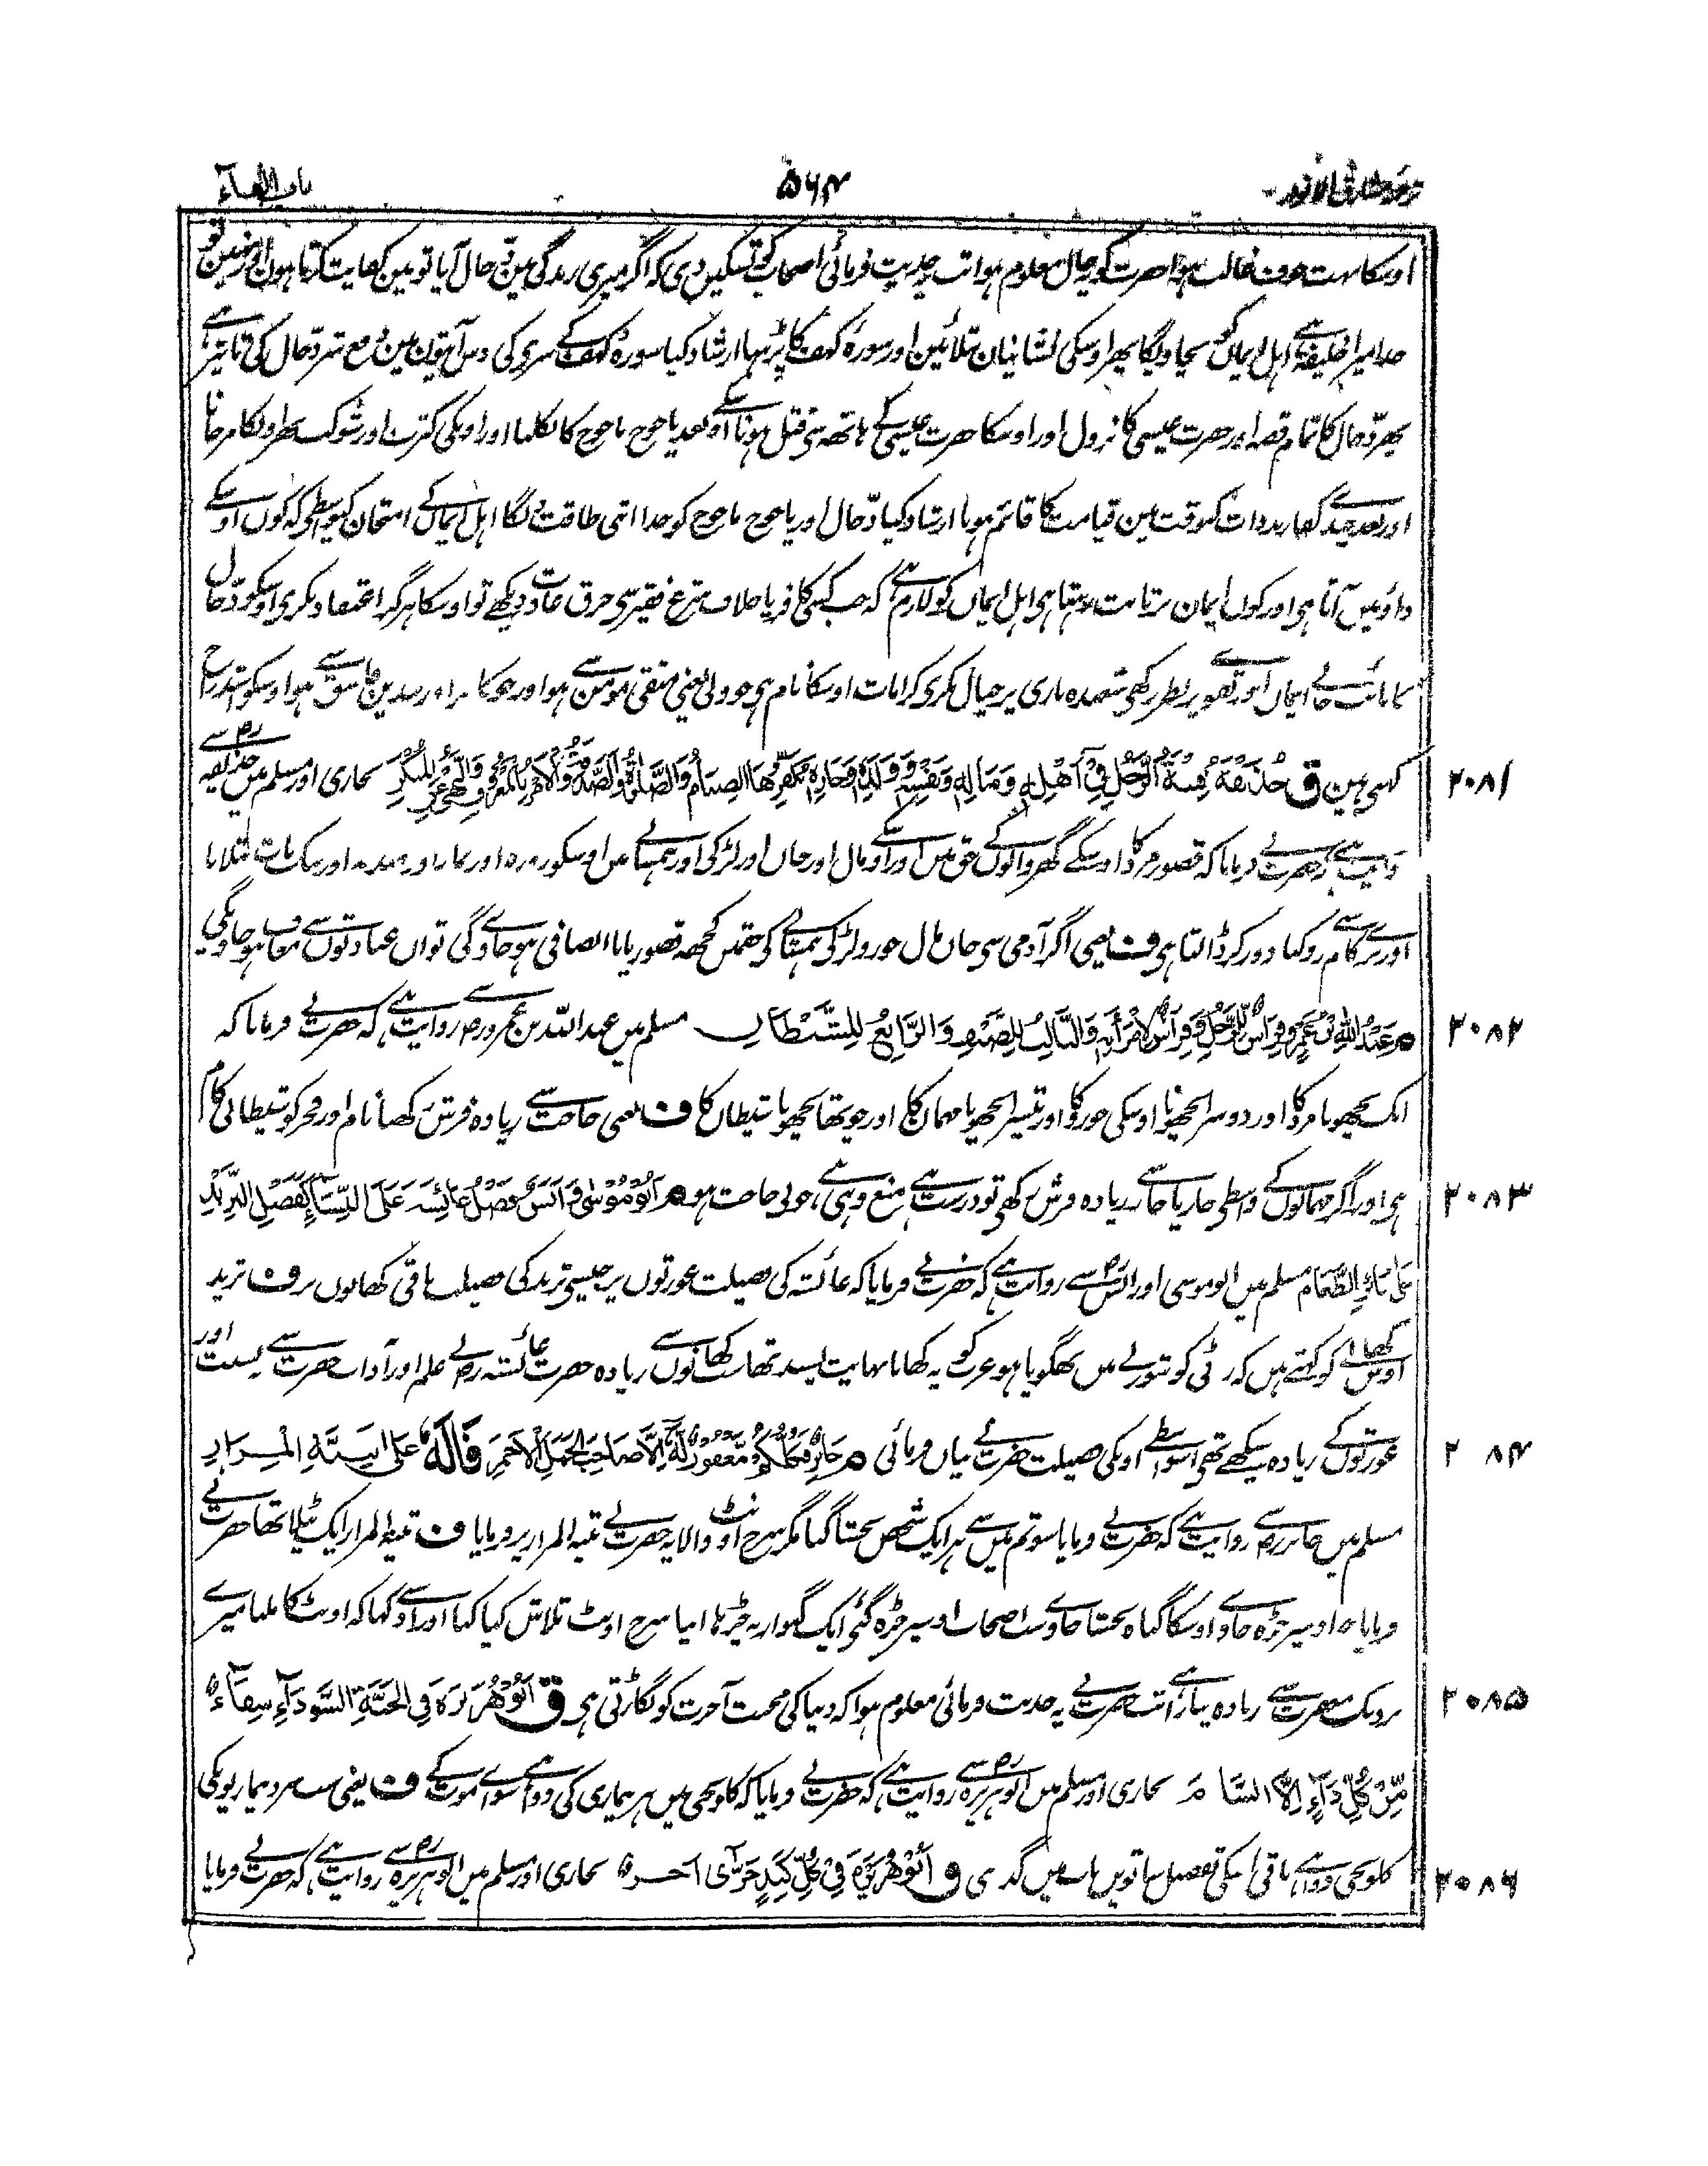 ترجمہ مشارق الانوار
۵۶۴
باب الفاء
اوسکا بہت خوف غالب ہوا حضرت کو یہ حال معلوم ہوا تب یہ حدیث فرمائی اصحاب کو تسکین دی کہ اگر میری زندگی مین دجال آیا تو مین کفایت کرتا ہون اور نہین تو
خدا میرا خلیفہ ہے اہل ایمان کو بچاویگا پھر اوسکی نشانیان بتلائین اور سورۂ کہف کا پڑہنا ارشاد کیا سورہ کہف کے سری کی دس آیتون مین دفع شر دجال کی تاثیر ہے
پھر دجال کا تمام قصہ اور حضرت عیسی کا نزول اور اوسکا حضرت عیسی کے ہاتھ سی قتل ہونا اوسکے بعد یاجوج ماجوج کا نکلنا اور اونکی کثرت اور شوکت پھر اونکا مرجانا
اور بعد چند کفار بدذات کیوقت مین قیامت کا قائم ہونا ارشاد کیا دجال اور یاجوج ماجوج کو خدا اتنی طاقت دیگا اہل ایمان کے امتحان کیواسطی کہ کون اوسکے
داؤ میں آتا ہی اور کون ایمان پر ثابت رہتا ہی اہل ایمان کو لازم ہے کہ جب کسی کافر یا خلاف شرع فقیر سی خرق عادت دیکھے تو اوسکا ہرگز اعتقاد نکری اوسکو دجال
کا نائب جانے ایمان اور تقوی پر نظر رکھی شعبدہ بازی پر خیال نکری کرامات اوسکا نام ہی جو ولی یعنی متقی مؤمن سے ہو اور جو کافر اور بیدین فاسق سے ہو اوسکو استدراج
۲۰۸۱
کہتی ہین ق حُذَيْفَةَ فِتْنَةُ الرَّجُلِ فِيْ أَهْلِهٖ وَمَالِهٖ وَنَفْسِهٖ وَوَلَدِهٖ وَجَارِهٖ يُكَفِّرُهَا الصِّيَامُ وَالصَّلٰوةُ وَالصَّدَقَةُ وَالْاَمْرُ بِالْمَعْرُوْفِ وَالنَّهْيُ عَنِ الْمُنْكَرِ بخاری اور مسلم میں حذیفہ رض سے
روایت ہے کہ حضرت نے فرمایا کہ قصور مرد کا اوسکے گھر والوں کے حق میں اور اوسکے مال اور جان اور لڑکی اور ہمسائے میں اوسکو روزہ اور نماز اور صدقہ اور نیک بات بتلانا
اور برے کام سے روکنا دور کر ڈالتا ہی ف یعنی اگر آدمی سی جان مال جورو لڑکی ہمسائے کی حق میں کچھ قصور یا ناانصافی ہو جاوے گی تو ان عبادتوں سے معاف ہو جاویگی
۲۰۸۲
م عَبْدُ اللّٰهِ بْنُ عَمْرٍو فِرَاشٌ لِلرَّجُلِ وَفِرَاشٌ لِامْرَأَتِهٖ وَالثَّالِثُ لِلضَّيْفِ وَالرَّابِعُ لِلشَّيْطَانِ مسلم میں عبداللہ بن عمرو رض سے روایت ہے کہ حضرت نے فرمایا کہ
ایک بچھونا مرد کا اور دوسرا بچھونا اوسکی جورو کا اور تیسرا بچھونا مہمان کا اور چوتھا بچھونا شیطان کا ف یعنی حاجت سے زیادہ فرش رکھنا نام اور فخر کو شیطانی کام
۲۰۸۳
ہی اور اگر مہمانوں کے واسطی چار یا چار سے زیادہ فرش رکھی تو درست ہے منع وہی ہے جو بی حاجت ہو م اَبُوْ مُوْسٰى وَاَنَسٌ فَضْلُ عَائِشَةَ عَلَى النِّسَاءِ كَفَضْلِ الثَّرِيْدِ
عَلٰى سَائِرِ الطَّعَامِ مسلم میں ابو موسی اور انس رض سے روایت ہے کہ حضرت نے فرمایا کہ عائشہ کی فضیلت عورتوں پر جیسی ثرید کی فضیلت باقی کھانوں پر ف ثرید
اوس کھانے کو کہتے ہیں کہ روٹی کو شوربے میں بھگویا ہو عرب کو یہ کھانا نہایت پسند تھا سب کھانوں سے زیادہ حضرت عائشہ رض نے علم اور آداب حضرت سے بہ نسبت اور
۲۰۸۴
عورتوں کے زیادہ سیکھے تھی اسواسطے اونکی فضیلت حضرت نے بیاں فرمائی م جَابِرٌ فَكُلُّكُمْ مَغْفُوْرٌ لَهٗ اِلَّا صَاحِبَ الْجَمَلِ الْاَحْمَرِ قَالَهٗ عَلٰى ثَنِيَّةِ الْمِرَارِ
مسلم میں جابر رض سے روایت ہے کہ حضرت نے فرمایا سو تم میں سے ہر ایک شخص بخشا گیا مگر سرخ اونٹ والا یہ حضرت نے ثنیۃ المرار پر فرمایا ف ثنیۃ المرار ایک ٹیلا تھا حضرت نے
فرمایا جو اوسپر چڑھ جاوے اوسکا گناہ بخشا جاوے سب اصحاب اوسپر چڑھ گئی ایک گنوار نہ چڑھا اپنا سرخ اونٹ تلاش کیا کیا اور اوسنے کہا کہ اونٹ کا ملنا میرے
۲۰۸۵
نزدیک مغفرت سے زیادہ پیارا ہے تب حضرت نے یہ حدیث فرمائی معلوم ہوا کہ دنیا کی محبت آخرت کو بگاڑتی ہی ق اَبُوْ هُرَيْرَةَ فِي الْحَبَّةِ السَّوْدَاءِ شِفَاءٌ
مِنْ كُلِّ دَاءٍ اِلَّا السَّامَ بخاری اور مسلم میں ابو ہریرہ رض سے روایت ہے کہ حضرت نے فرمایا کہ کلونجی میں ہر بیماری کی دوا ہے سوائے موت کے ف یعنی سب سرد بیماریونکی
۲۰۸۶
کلونجی دوا ہے باقی اسکی تفصیل ساتویں باب میں گذری ق اَبُوْ هُرَيْرَةَ فِيْ كُلِّ كَبِدٍ حَرّٰى اَجْرٌ بخاری اور مسلم میں ابو ہریرہ رض سے روایت ہے کہ حضرت نے فرمایا